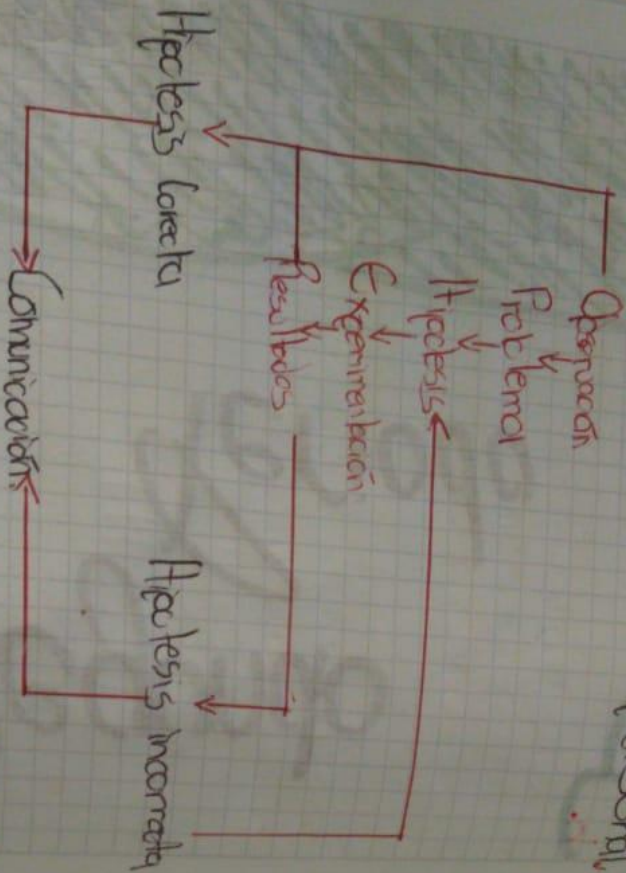 Observación
Problema
Hipotesis
Experimentación
Resultados
Hipotesis Correcta
Hipotesis incorrecta
Comunicación